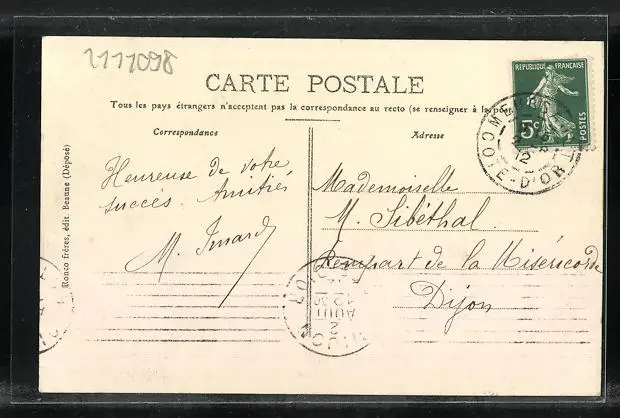 2111098
CARTE POSTALE
Tous les pays étrangers n'acceptent pas la correspondance au recto (se renseigner à la pos
Correspondance
Adresse
Heureuse de votre
succès. Amitiés
Mademoiselle
M. Sibéthal
Rempart de la Miséricorde
Dijon
Ronco frères, édit. Beaune (Déposé)
REPUBLIQUE FRANÇAISE
5c
POSTES
12
COTE-D'OR
DIJON
AOUT